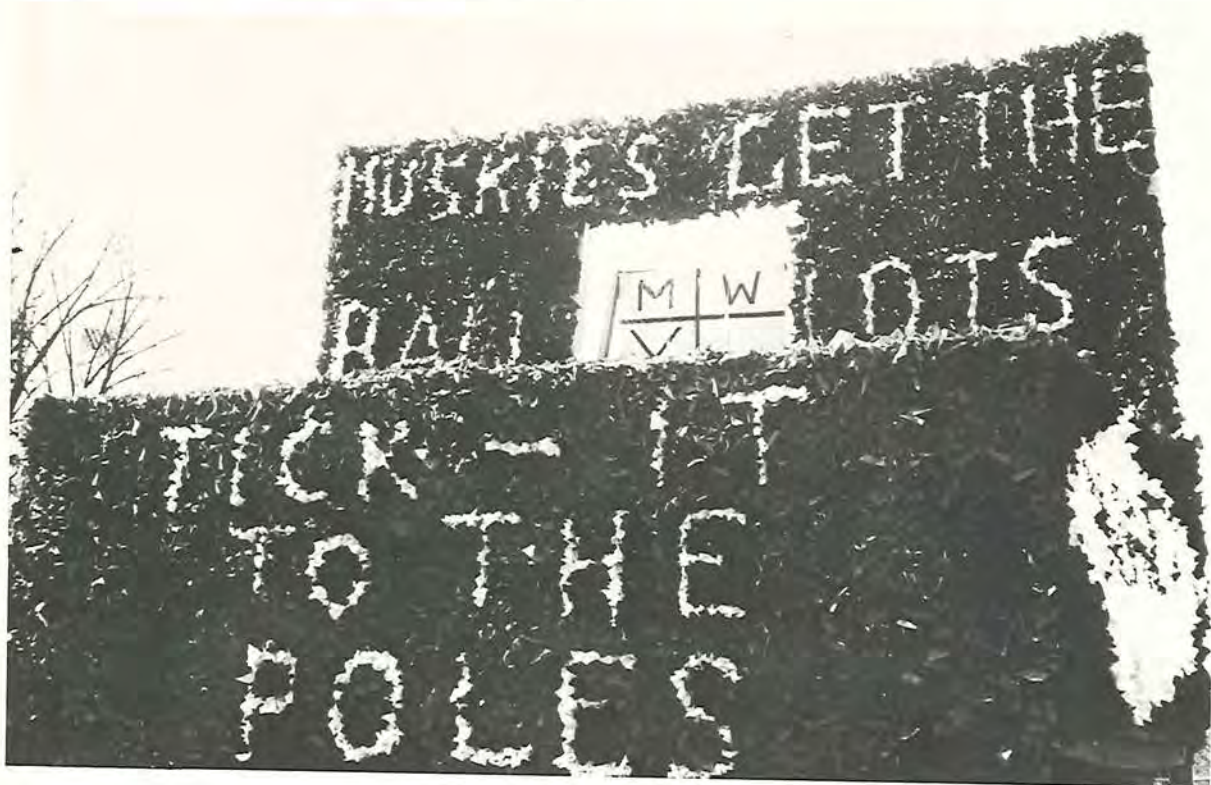 HUSKIES GET THE
M W
BALL LOTS
V
TICK-IT
TO THE
POLES